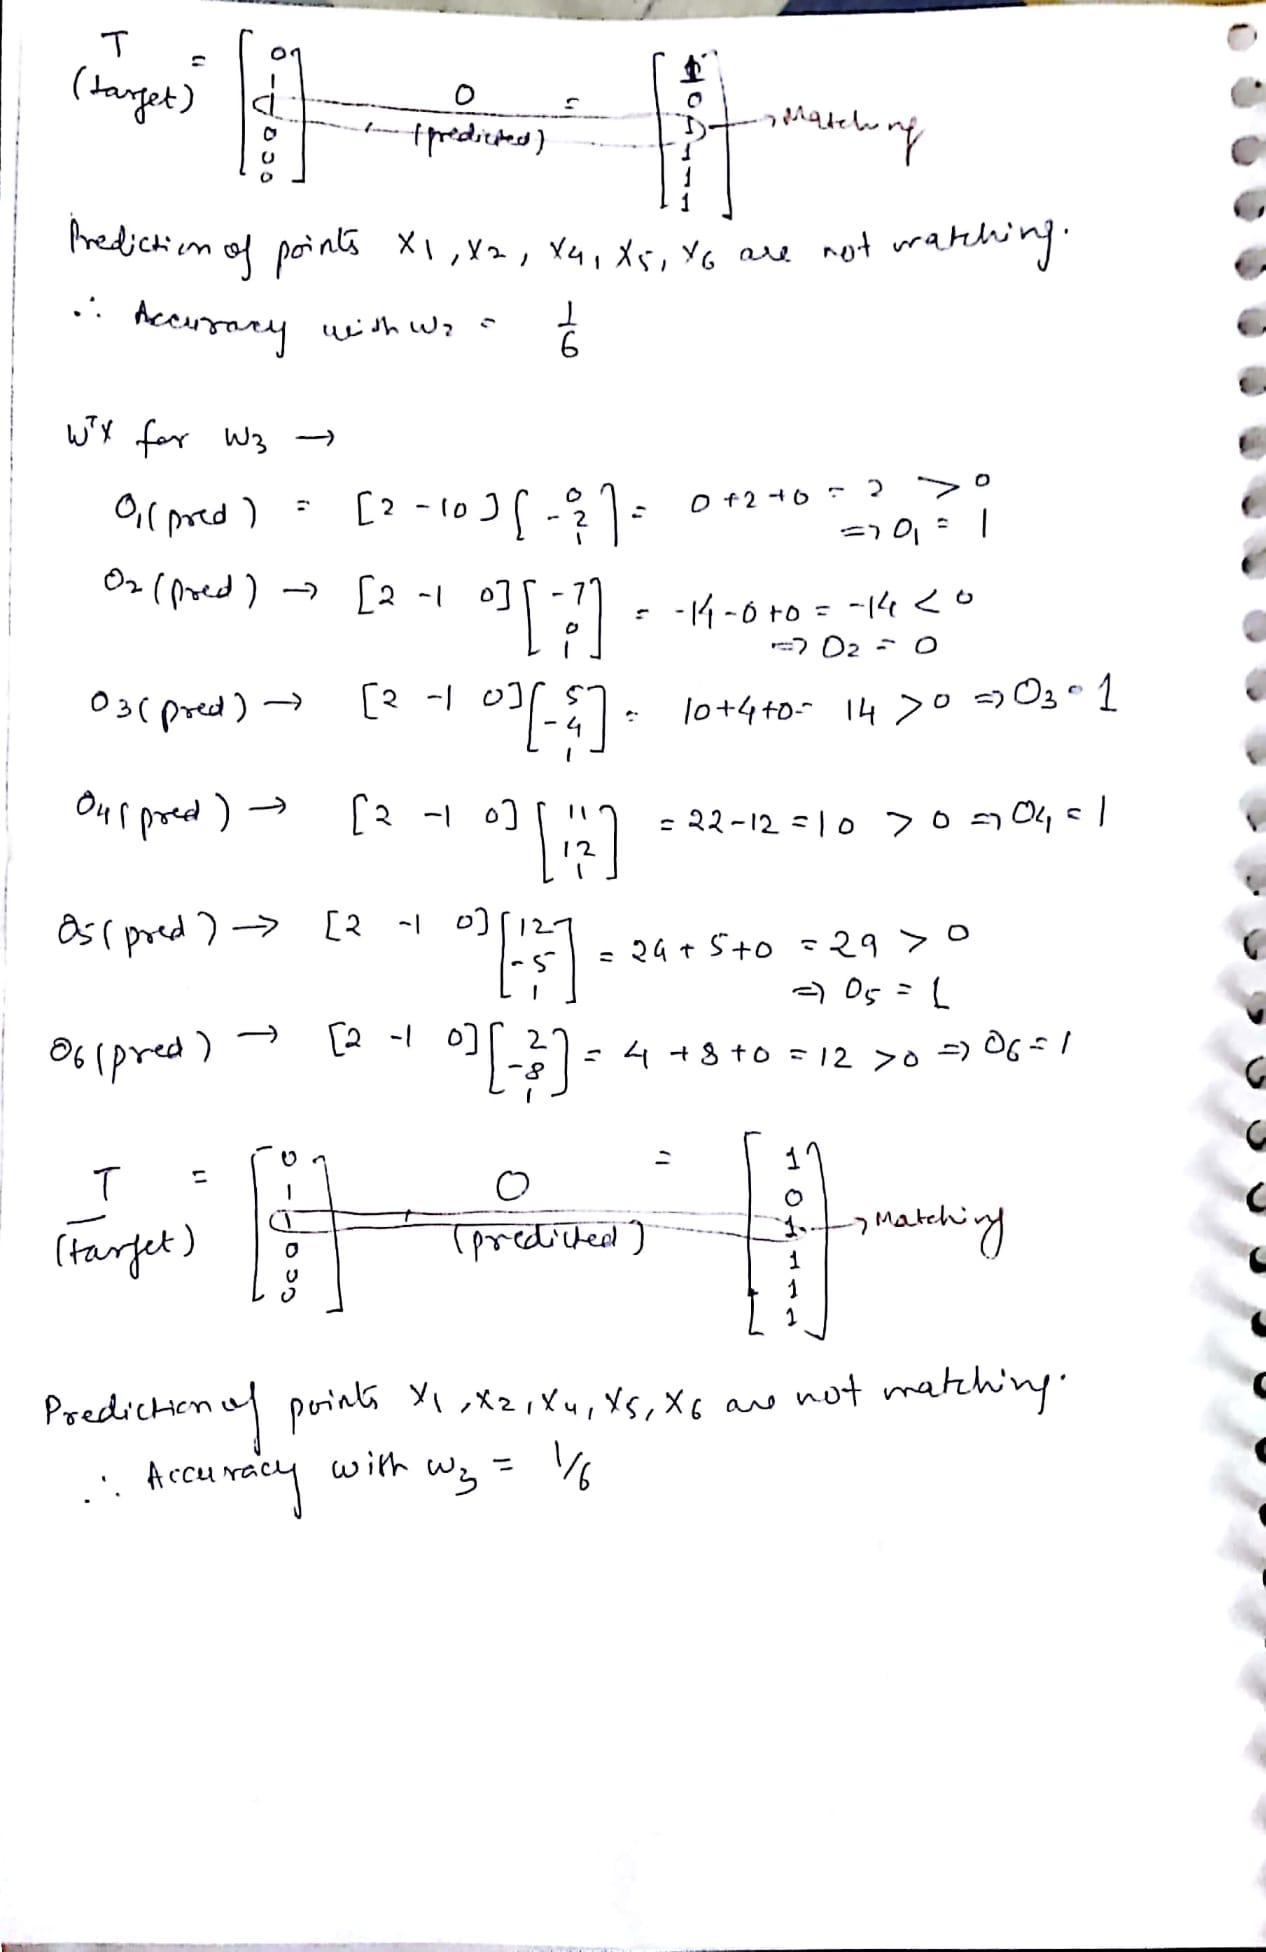 T
(target) = [0 1 1 0 0 0] O (predicted) = [1 0 1 1 1 1] → Matching
Prediction of points X1, X2, X4, X5, X6 are not matching.
∴ Accuracy with W2 = 1/6
WᵀX for W3 →
O1(pred) = [2 -1 0] [0 -2 1] = 0+2+0 = 2 > 0
⇒ O1 = 1
O2(pred) → [2 -1 0] [-7 0 1] = -14-0+0 = -14 < 0
⇒ O2 = 0
O3(pred) → [2 -1 0] [5 -4 1] = 10+4+0= 14 > 0 ⇒ O3 = 1
O4(pred) → [2 -1 0] [11 12 1] = 22-12 = 10 > 0 ⇒ O4 = 1
O5(pred) → [2 -1 0] [12 -5 1] = 24+5+0 = 29 > 0
⇒ O5 = 1
O6(pred) → [2 -1 0] [2 -8 1] = 4+8+0 = 12 > 0 ⇒ O6 = 1
T
(target) = [0 1 1 0 0 0] O (predicted) = [1 0 1 1 1 1] → Matching
Prediction of points X1, X2, X4, X5, X6 are not matching.
∴ Accuracy with W3 = 1/6